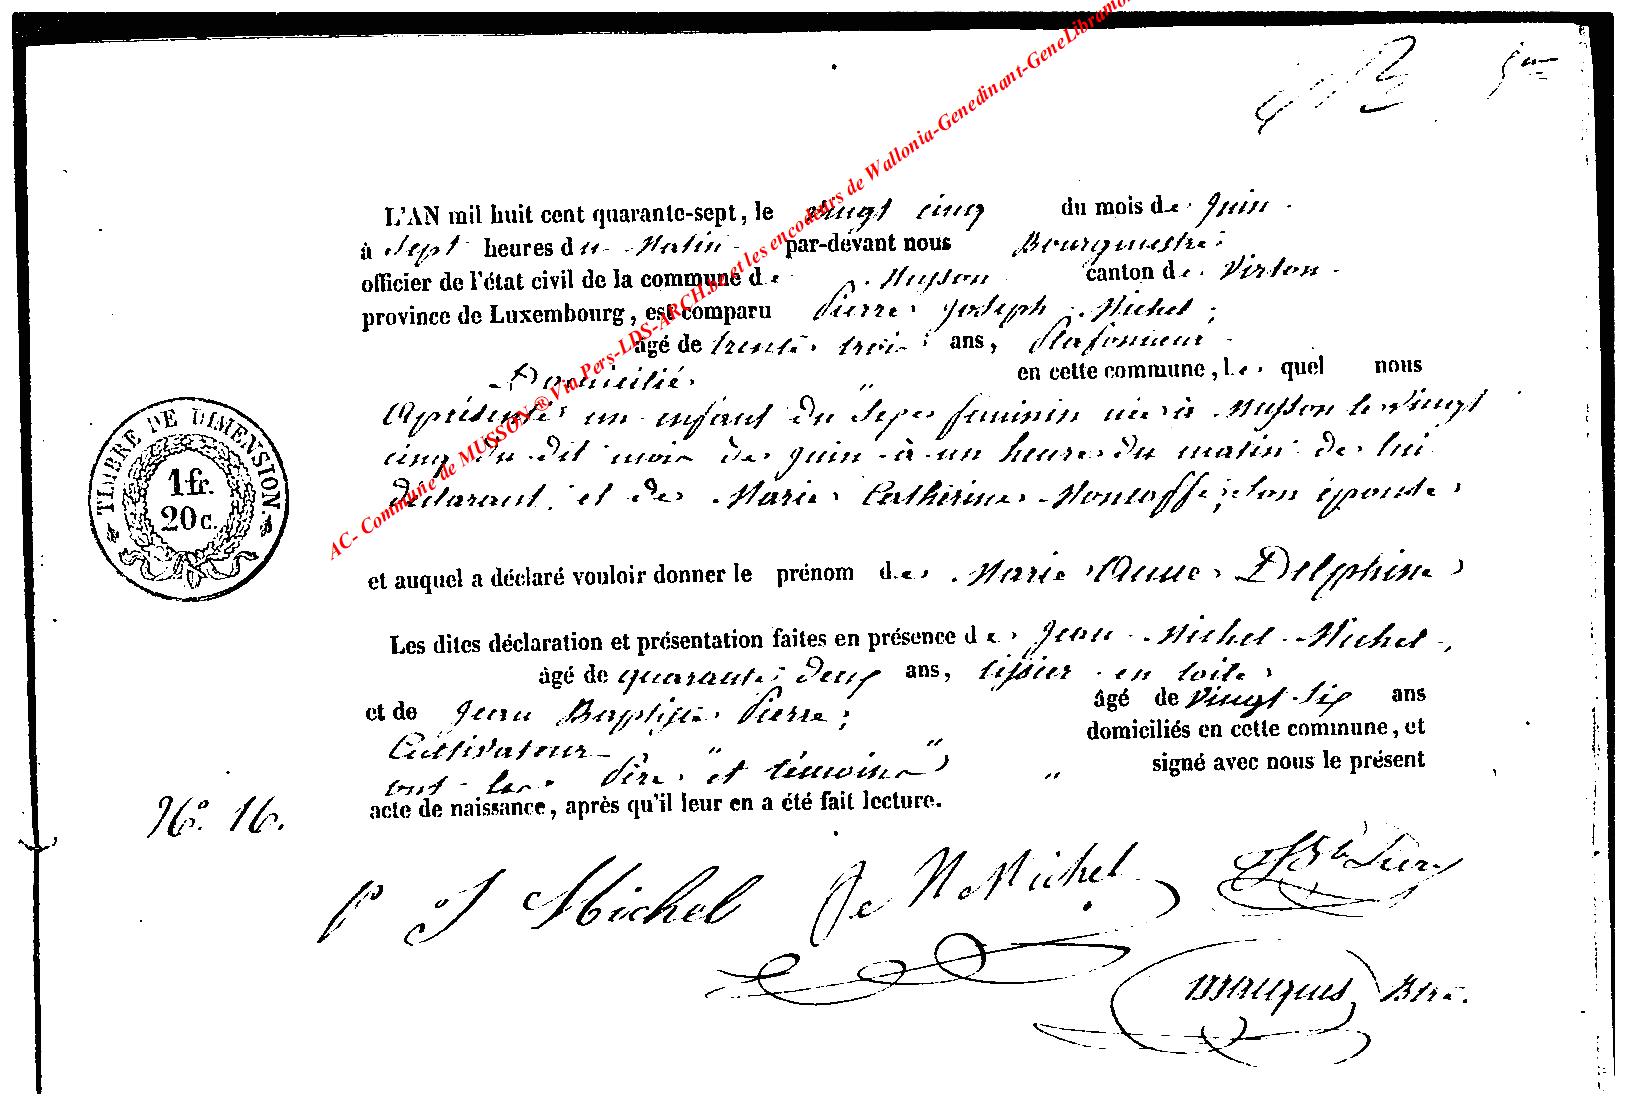 5me
L'AN mil huit cent quarante-sept, le vingt cinq du mois de Juin
à sept heures du Matin par-devant nous Bourgmestre
officier de l'état civil de la commune de Musson canton de Virton
province de Luxembourg, est comparu Pierre Joseph Michel,
âgé de trente trois ans, Plafonneur
Domicilié " en cette commune, le quel nous
a présenté un enfant du sexe féminin né à Musson le vingt
cinq du dit mois de juin à un heure du matin de lui
déclarant et de Marie Catherine Moncoffe, son épouse
et auquel a déclaré vouloir donner le prénom de Marie Anne Delphine
Les dites déclaration et présentation faites en présence de Jean Michel Michel,
âgé de quarante deux ans, tissier en toile
et de Jean Baptiste Pierre; âgé de vingt six ans
Cultivateur " " domiciliés en cette commune, et
ont les Père et témoins " signé avec nous le présent
acte de naissance, après qu'il leur en a été fait lecture.
No. 16.
TIMBRE DE DIMENSION
1 fr.
20 c.
P J Michel Je M Michel
Bre.
AC- Commune de MUSSON ® Via Pers-LDS-ARCH.be et les encodeurs de Wallonia-Genedinant-GeneLibramo